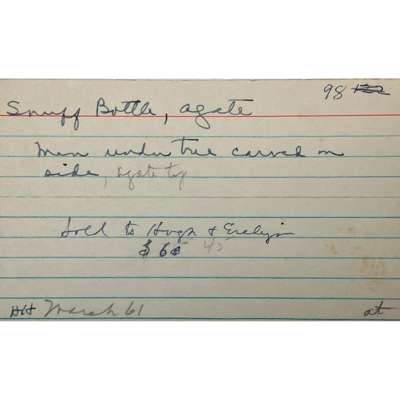 98 122
Snuff Bottle, agate
Men under tree carved on
side, agate top
Sold to Hugh & Evelyn
$ 65
HH March 61 at